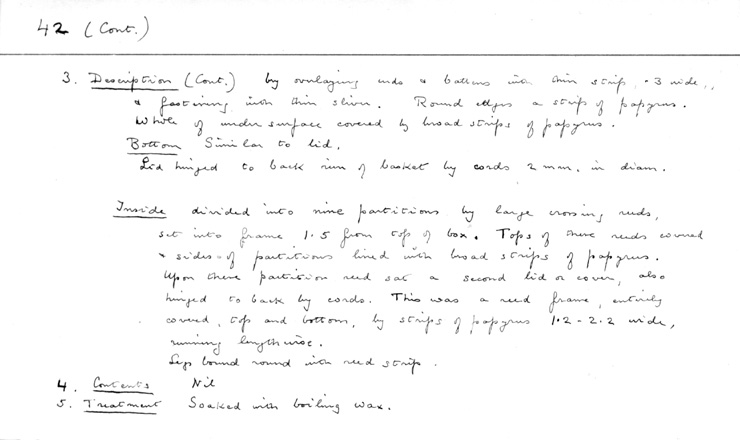 42 (Cont.)
3. Description (Cont.) by overlaying ends & battens with thin strip, ·3 wide,
& fastening with thin sliver. Round edges a strip of papyrus.
Whole of under surface covered by broad strips of papyrus.
Bottom Similar to lid.
Lid hinged to back rim of basket by cords 2 mm. in diam.
Inside divided into nine partitions by large crossing reeds,
set into frame 1·5 from top of box. Tops of these reeds covered
& sides of partitions lined with broad strips of papyrus.
Upon these partition reed sat a second lid or cover, also
hinged to back by cords. This was a reed frame, entirely
covered, top and bottom, by strips of papyrus 1·2 - 2·2 wide,
running lengthwise.
Legs bound round with reed strip.
4. Contents Nil
5. Treatment Soaked with boiling wax.